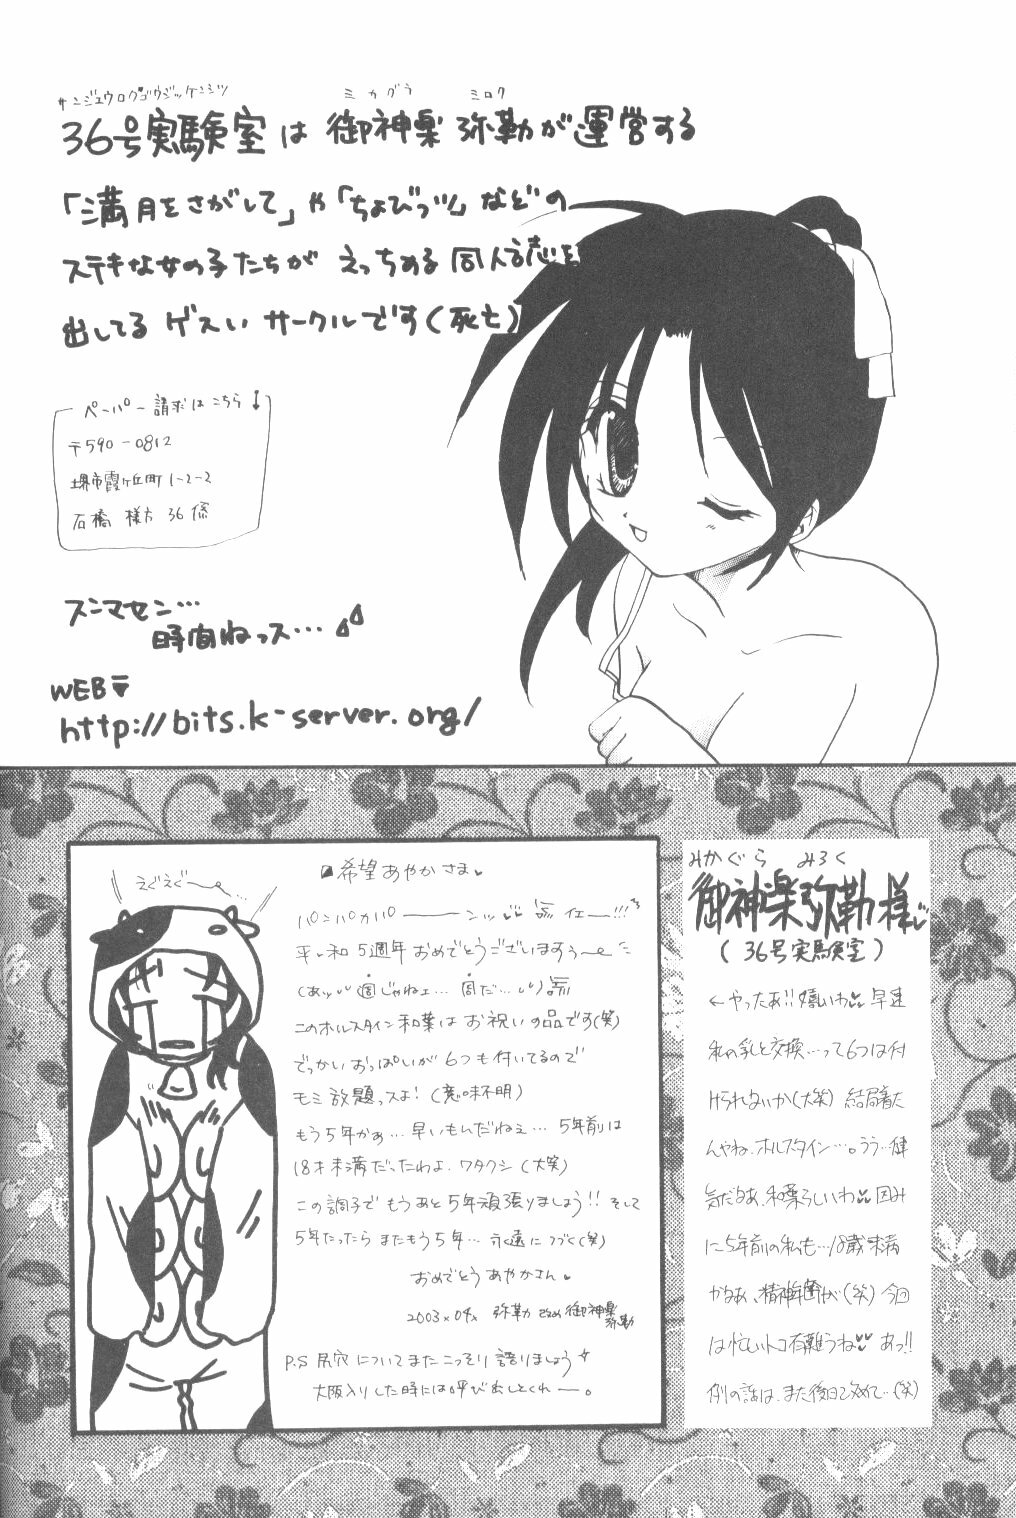 サンジュウロクゴウジッケンシツ
ミカグラ ミロク
36号実験室は 御神楽 弥勒が運営する
「満月をさがして」や「ちょびっツ」などの
ステキな女の子たちが えっちめる同人誌を
出してる ゲスい サークルです(死亡)
ペーパー請求はこちら↓
〒590-0812
堺市霞ヶ丘町1-2-2
石橋 様方 36係
スンマセン…
時間ねっス…
WEB
http://bits.k-server.org/
えぐえぐ〜。
希望あやかさま
パンパカパーーンッ イエー!!!
平和5週年おめでとうございますぅ〜
(あッ 週じゃねェ… 周だ…)
このホルスタイン和葉は お祝いの品です(笑)
でっかいおっぱいが6つも付いてるので
モミ放題っスよ!(意味不明)
もう5年かぁ…早いもんだねぇ… 5年前は
18才未満だったわよ、ワタクシ(大笑)
この調子で もうあと5年頑張りましょう!! そして
5年たったら またもう5年… 永遠に つづく(笑)
おめでとう あやかさん
2003×04× 弥勒 改め御神楽
弥勒
P.S 尻穴についてまたこっそり語りましょう
大阪入りした時には呼び出しとくれー。
みかぐら みろく
御神楽弥勒様
(36号実験室)
←やったぁ!!嬉しいわ 早速
私の乳と交換…って6つは付
けられないか(大笑) 結局着た
んやね、ホルスタイン…。うう…健
気だなあ、和葉らしいわ 因み
に5年前の私も…18歳未満
かなあ、精神年齢が(笑) 今回
は忙しいトコ有難うね あっ!!
例の話は、また後日で改めて…(笑)